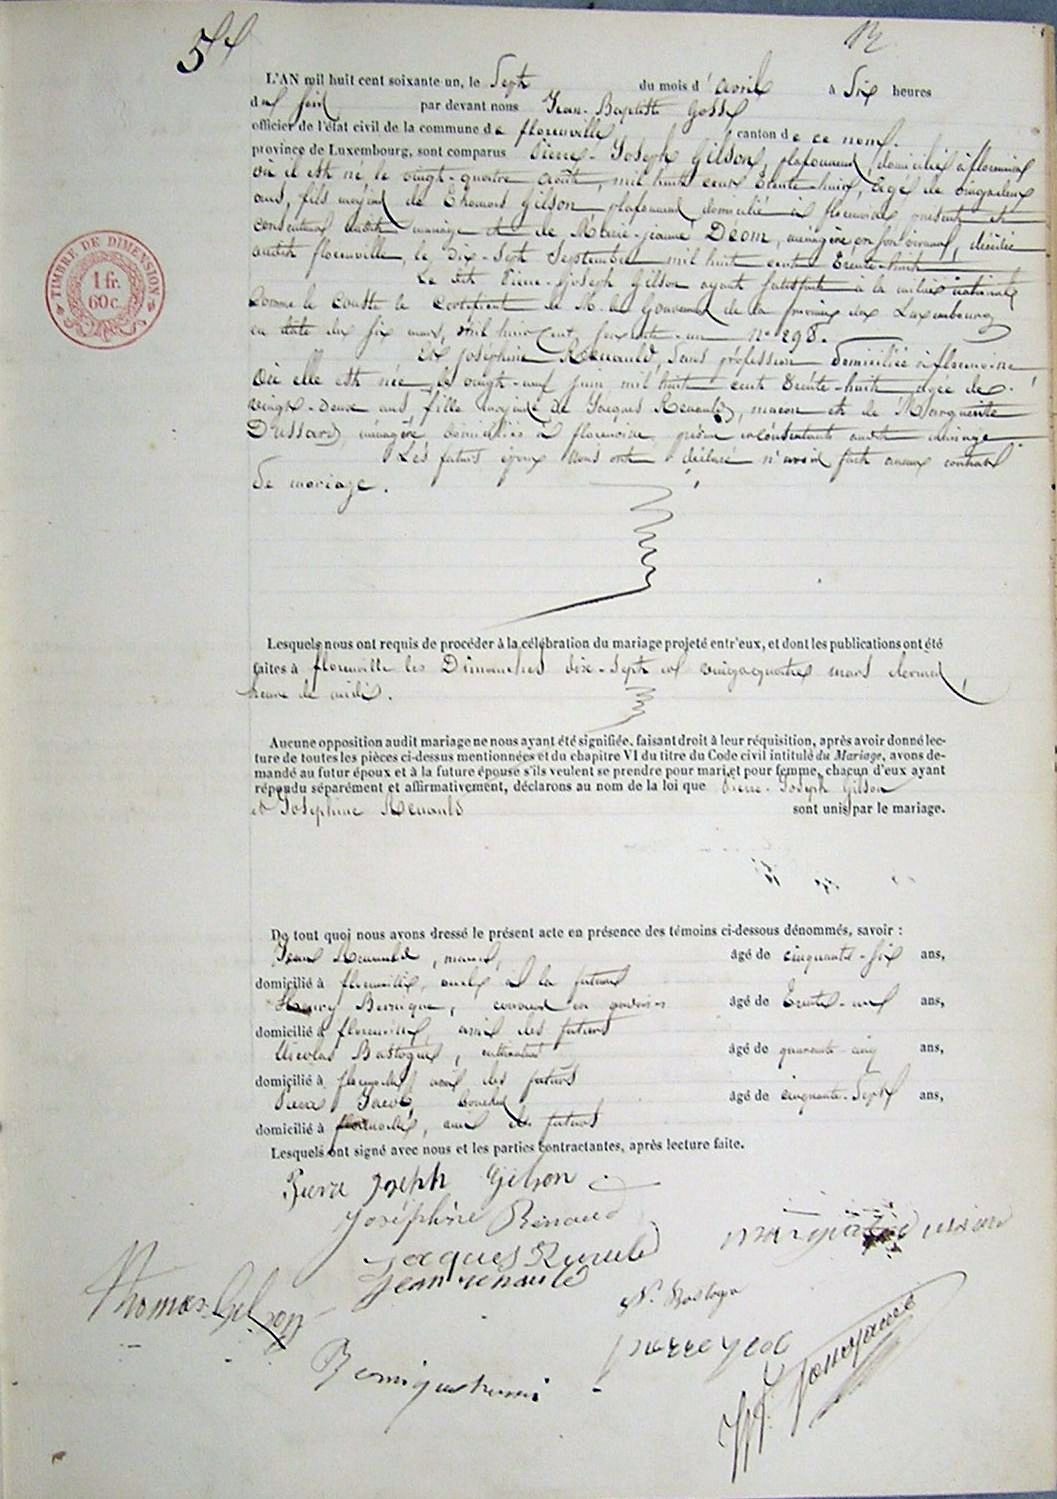 5
12
TIMBRE DE DIMENSION
1 fr.
60 c.
L'AN mil huit cent soixante-un, le Sept du mois d'avril à Six heures
du soir par devant nous Jean-Baptiste
officier de l'état civil de la commune de florenville, canton de ce nom.
province de Luxembourg, sont comparus Pierre-Joseph Gilson, plafonneur, domicilié à florenville
où il est né le vingt-quatre août, mil huit cent trente-huit, âgé de vingt deux
ans, fils majeur de Thomas Gilson plafonneur domicilié à florenville présent et
consentant audit mariage et de Marie-jeanne Déom, ménagère en son vivant, décédée
audit florenville, le Dix-Sept Septembre mil huit cent trente-huit
Le dit Pierre-Joseph Gilson ayant satisfait à la milice nationale
comme le conste le certificat de M. le Gouverneur de la province du Luxembourg
en date du six mars, mil huit cent soixante-un N° 298.
Et Joséphine Renauld, Sans profession domiciliée à florenville
où elle est née le vingt-neuf juin mil huit cent trente-huit agée de
vingt-Deux ans, fille majeure de Jacques Renauld, maçon et de Marguerite
Dussard, ménagère, domiciliés à florenville, présents consentants audit mariage
Les futurs époux Nous ont déclaré n'avoir fait aucun contrat
de mariage.
Lesquels nous ont requis de procéder à la célébration du mariage projeté entr'eux, et dont les publications ont été
faites à florenville les Dimanches dix-Sept et vingt quatre mars dernier,
heure de midi.
Aucune opposition audit mariage ne nous ayant été signifiée, faisant droit à leur réquisition, après avoir donné lec-
ture de toutes les pièces ci-dessus mentionnées et du chapitre VI du titre du Code civil intitulé du Mariage, avons de-
mandé au futur époux et à la future épouse s'ils veulent se prendre pour mari et pour femme, chacun d'eux ayant
répondu séparément et affirmativement, déclarons au nom de la loi que Pierre-Joseph Gilson
et Joséphine Renauld sont unis par le mariage.
De tout quoi nous avons dressé le présent acte en présence des témoins ci-dessous dénommés, savoir :
Jean Renauld, âgé de cinquante-six ans,
domicilié à florenville, oncle à la future
Henry Bernique, âgé de trente-un ans,
domicilié à florenville, ami des futurs
Nicolas Bastogne, cultivateur âgé de quarante-cinq ans,
domicilié à florenville ami des futurs
Pierre Jacob, âgé de cinquante-Sept ans,
domicilié à florenville, ami des futurs
Lesquels ont signé avec nous et les parties contractantes, après lecture faite.
Pierre Joseph Gilson
Joséphine Renaud
Jacques Renauld
Jean renauld
Thomas Gilson
N. Bastogne